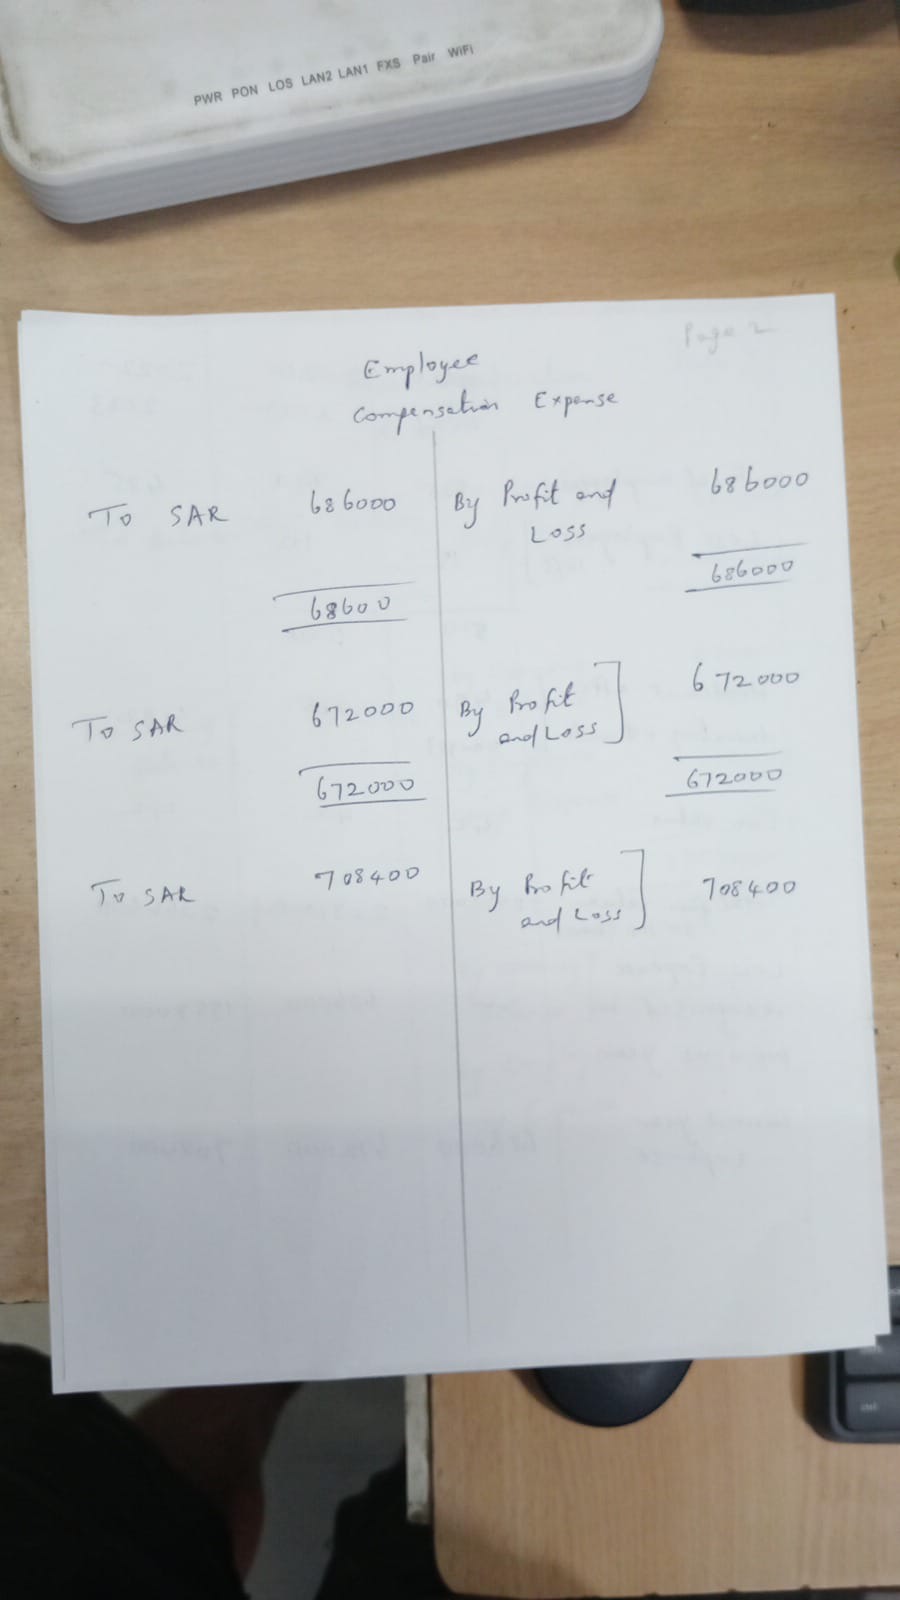 PWR PON LOS LAN2 LAN1 FXS Pair WiFi
Page 2
Employee
Compensation Expense
To SAR 686000 By Profit and 686000
Loss
68600 686000
To SAR 672000 By Profit 672000
and Loss
672000 672000
To SAR 708400 By Profit 708400
and Loss